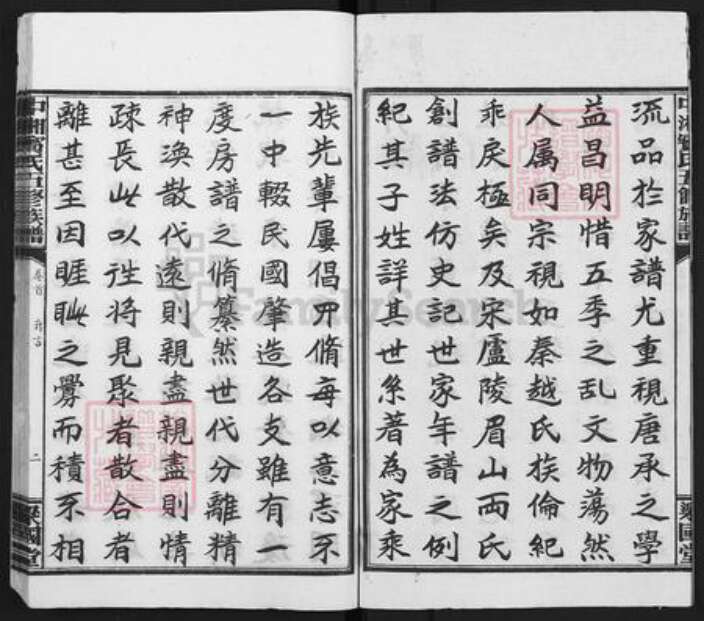 流品於家譜尤重視唐承之學
益昌明惜五季之乱文物蕩然
人属同宗視如秦越氏族倫紀
乖戾極矣及宋廬陵眉山両氏
創譜法仿史記世家年譜之例
紀其子姓詳其世系著為家乘
族先輩屢倡九脩每以意志不
一中輟民國肇造各支雖有一
度房譜之脩纂然世代分離精
神渙散代遠則親盡親盡則情
疎長此以徃將見聚者散合者
離甚至因睚眦之釁而積不相
卷首
二
FamilySearch